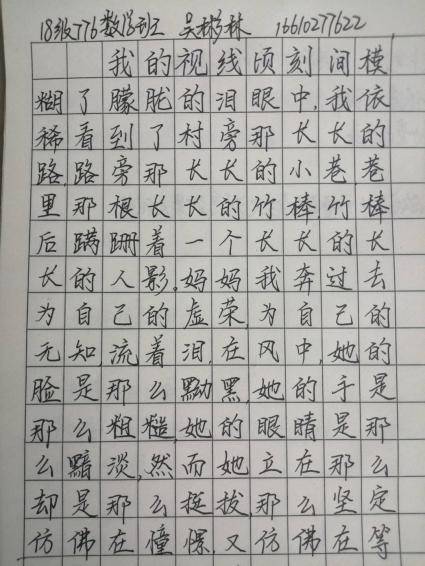 18级776数学班 吴彬林 16610277622
我的视线顷刻间模
糊了朦胧的泪眼中,我依
稀看到了村旁那长长的
路,路旁那长长的小巷,巷
里那根长长的竹棒,竹棒
后蹒跚着一个长长的长
长的人影,妈妈我奔过去
为自己的虚荣,为自己的
无知,流着泪,在风中,她的
脸是那么黝黑,她的手是
那么粗糙,她的眼睛是那
么黯淡,然而她立在那么
却是那么挺拔,那么坚定
仿佛在憧憬,又仿佛在等